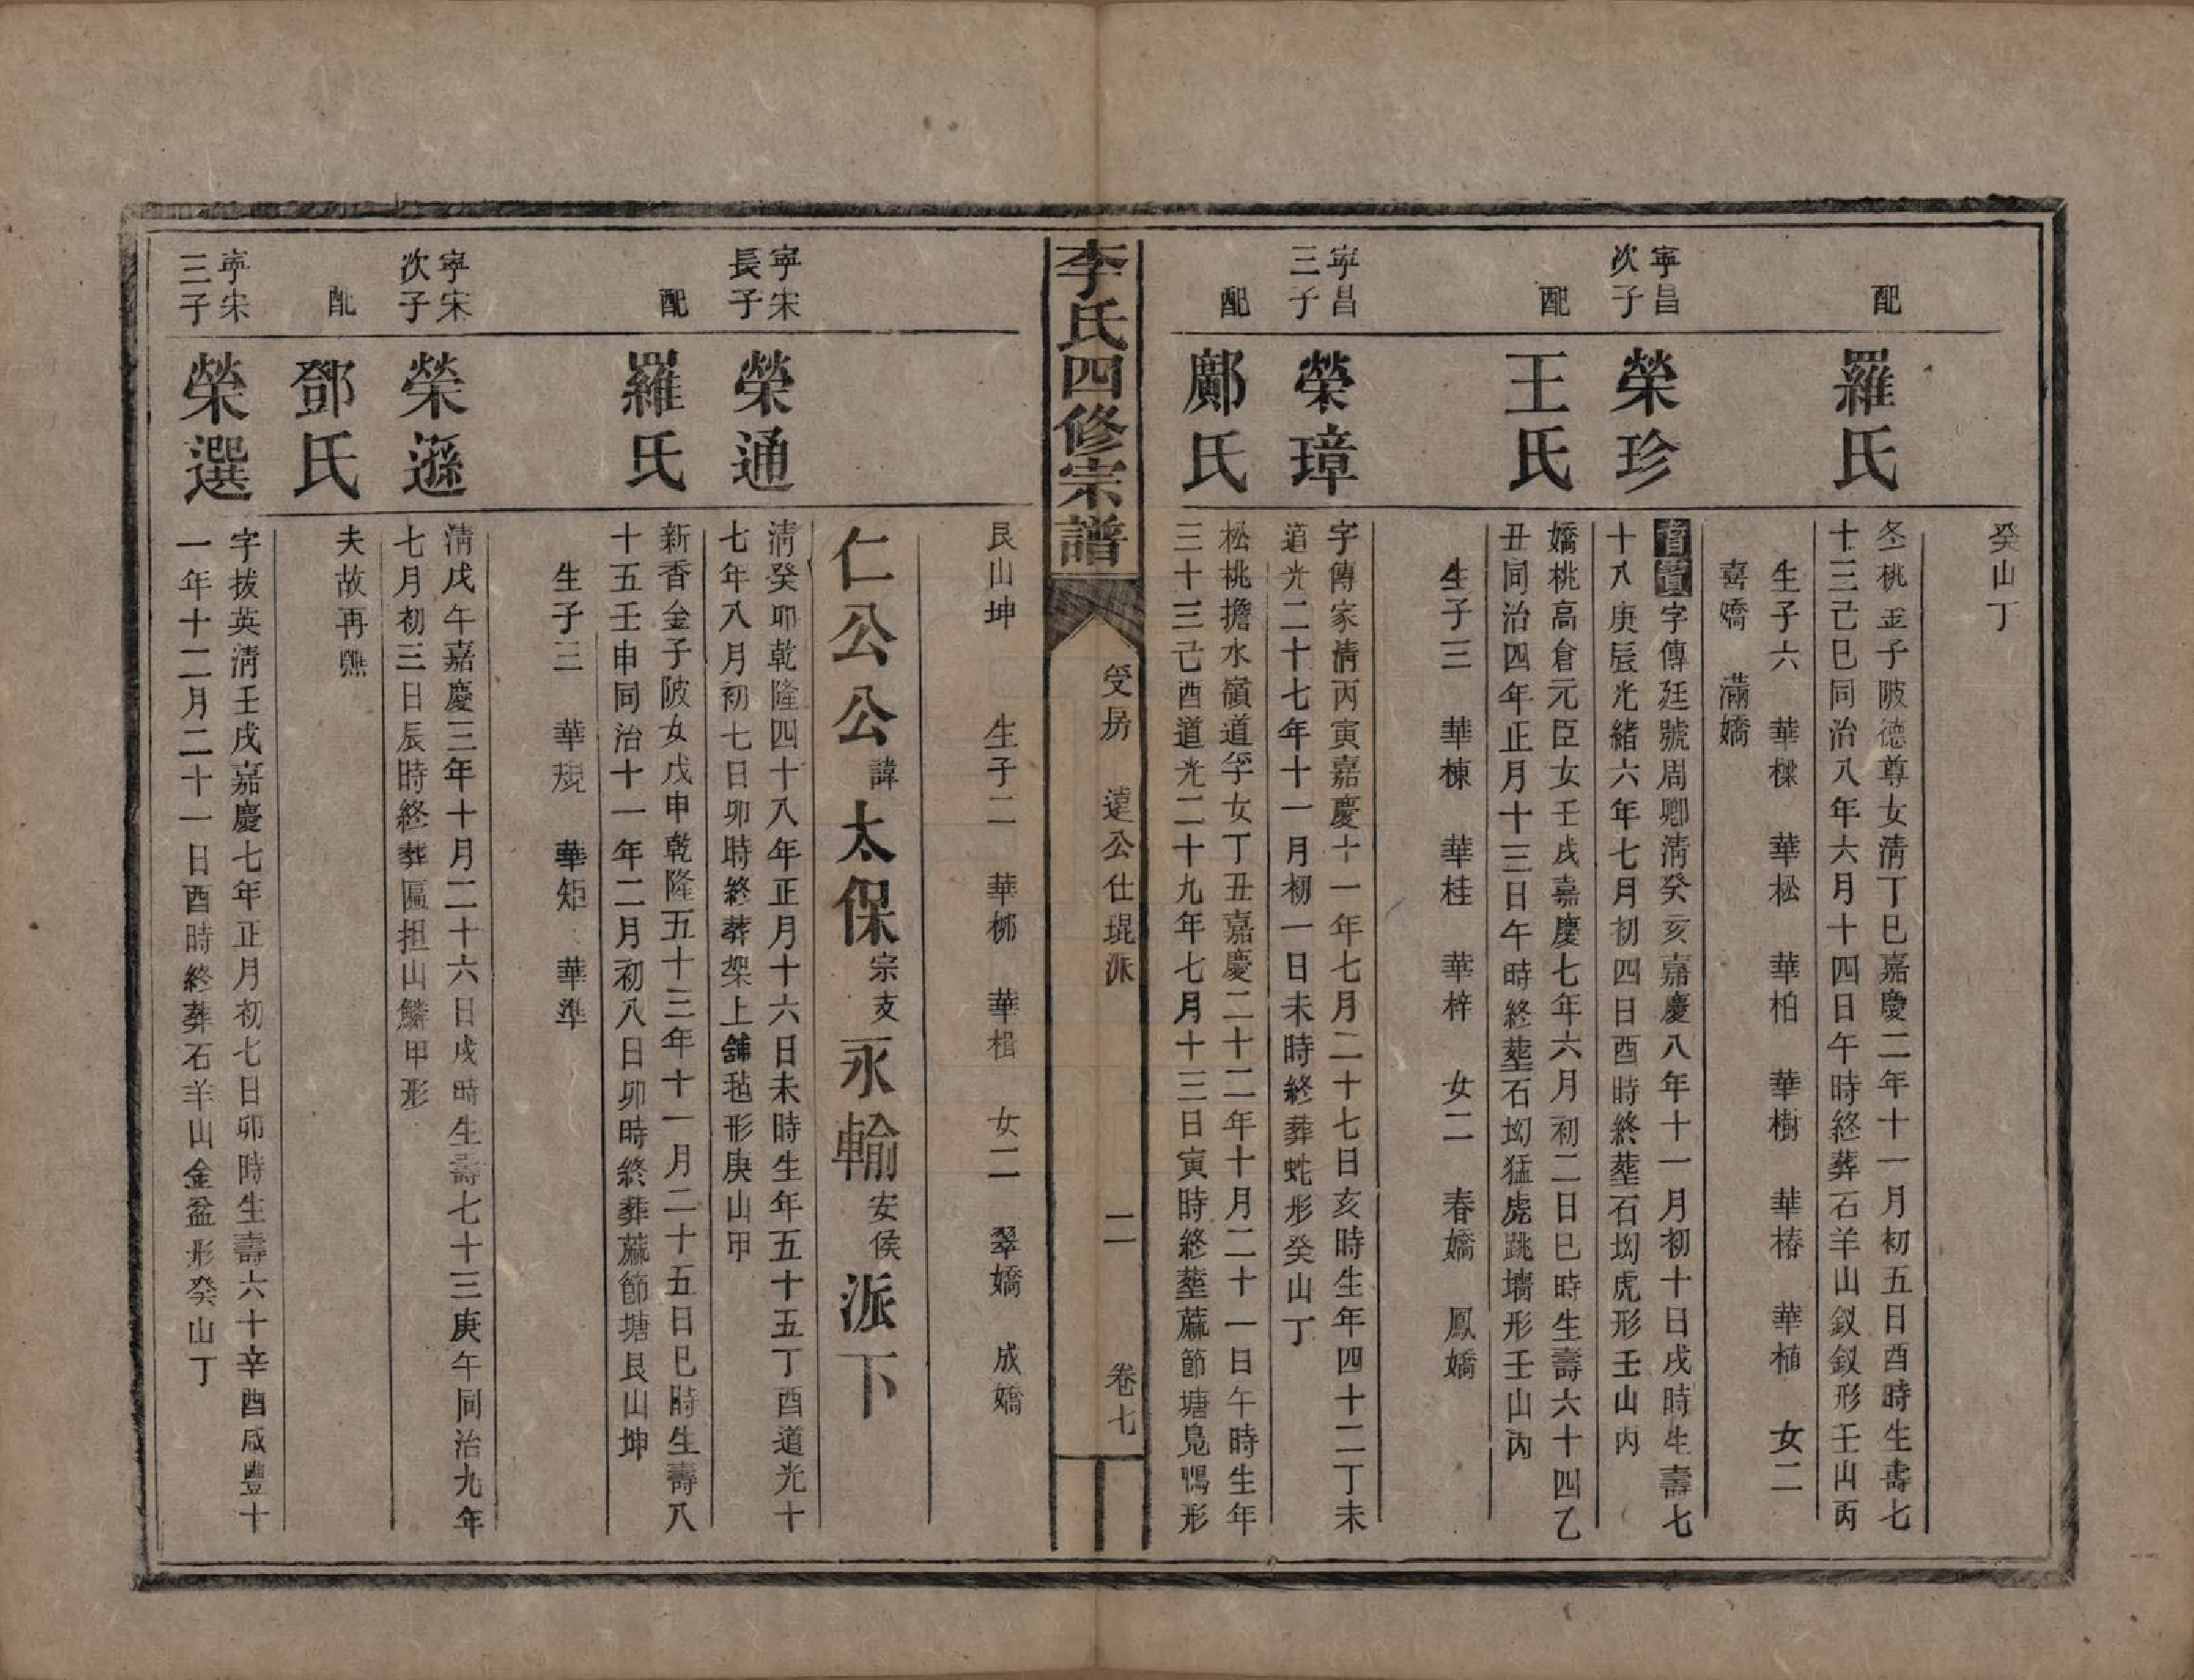 癸山丁
配
羅氏
冬桃金子陂德尊女淸丁巳嘉慶二年十一月初五日酉時生壽七
十三己巳同治八年六月十四日午時終葬石羊山釵釵形壬山丙
生子六　華檪　華松　華柏　華樹　華椿　華植　女二
喜嬌　滿嬌
寧昌
次子
榮珍
字傳廷號周卿淸癸亥嘉慶八年十一月初十日戌時生壽七
十八庚辰光緒六年七月初四日酉時終塟石坳虎形壬山丙
配
王氏
嬌桃高倉元臣女壬戌嘉慶七年六月初二日巳時生壽六十四乙
丑同治四年正月十三日午時終塟石坳猛虎跳墻形壬山丙
生子三　華棟　華桂　華梓　女二　春嬌　鳳嬌
寧昌
三子
榮璋
字傳家淸丙寅嘉慶十一年七月二十七日亥時生年四十二丁未
道光二十七年十一月初一日未時終葬虵形癸山丁
配
鄺氏
松桃擔水嶺道孚女丁丑嘉慶二十二年十月二十一日午時生年
三十三己酉道光二十九年七月十三日寅時終塟蔴節塘鳧鴨形
李氏四修宗譜
受房　遠公仕琨派　二　卷七
艮山坤　生子二　華梛　華楫　女二　翠嬌　成嬌
仁公公諱太保宗支永輸安侯派下
寧宋
長子
榮通
淸癸卯乾隆四十八年正月十六日未時生年五十五丁酉道光十
七年八月初七日卯時終葬架上舖毡形庚山甲
配
羅氏
新香金子陂女戊申乾隆五十三年十一月二十五日巳時生壽八
十五壬申同治十一年二月初八日卯時終葬蔴節塘艮山坤
生子三　華規　華矩　華準
寧宋
次子
榮遜
淸戊午嘉慶三年十月二十六日戌時生壽七十三庚午同治九年
七月初三日辰時終葬匾担山鱗甲形
配
鄧氏
夫故再醮
寧宋
三子
榮選
字拔英淸壬戌嘉慶七年正月初七日卯時生壽六十辛酉咸豐十
一年十二月二十一日酉時終葬石羊山金盆形癸山丁